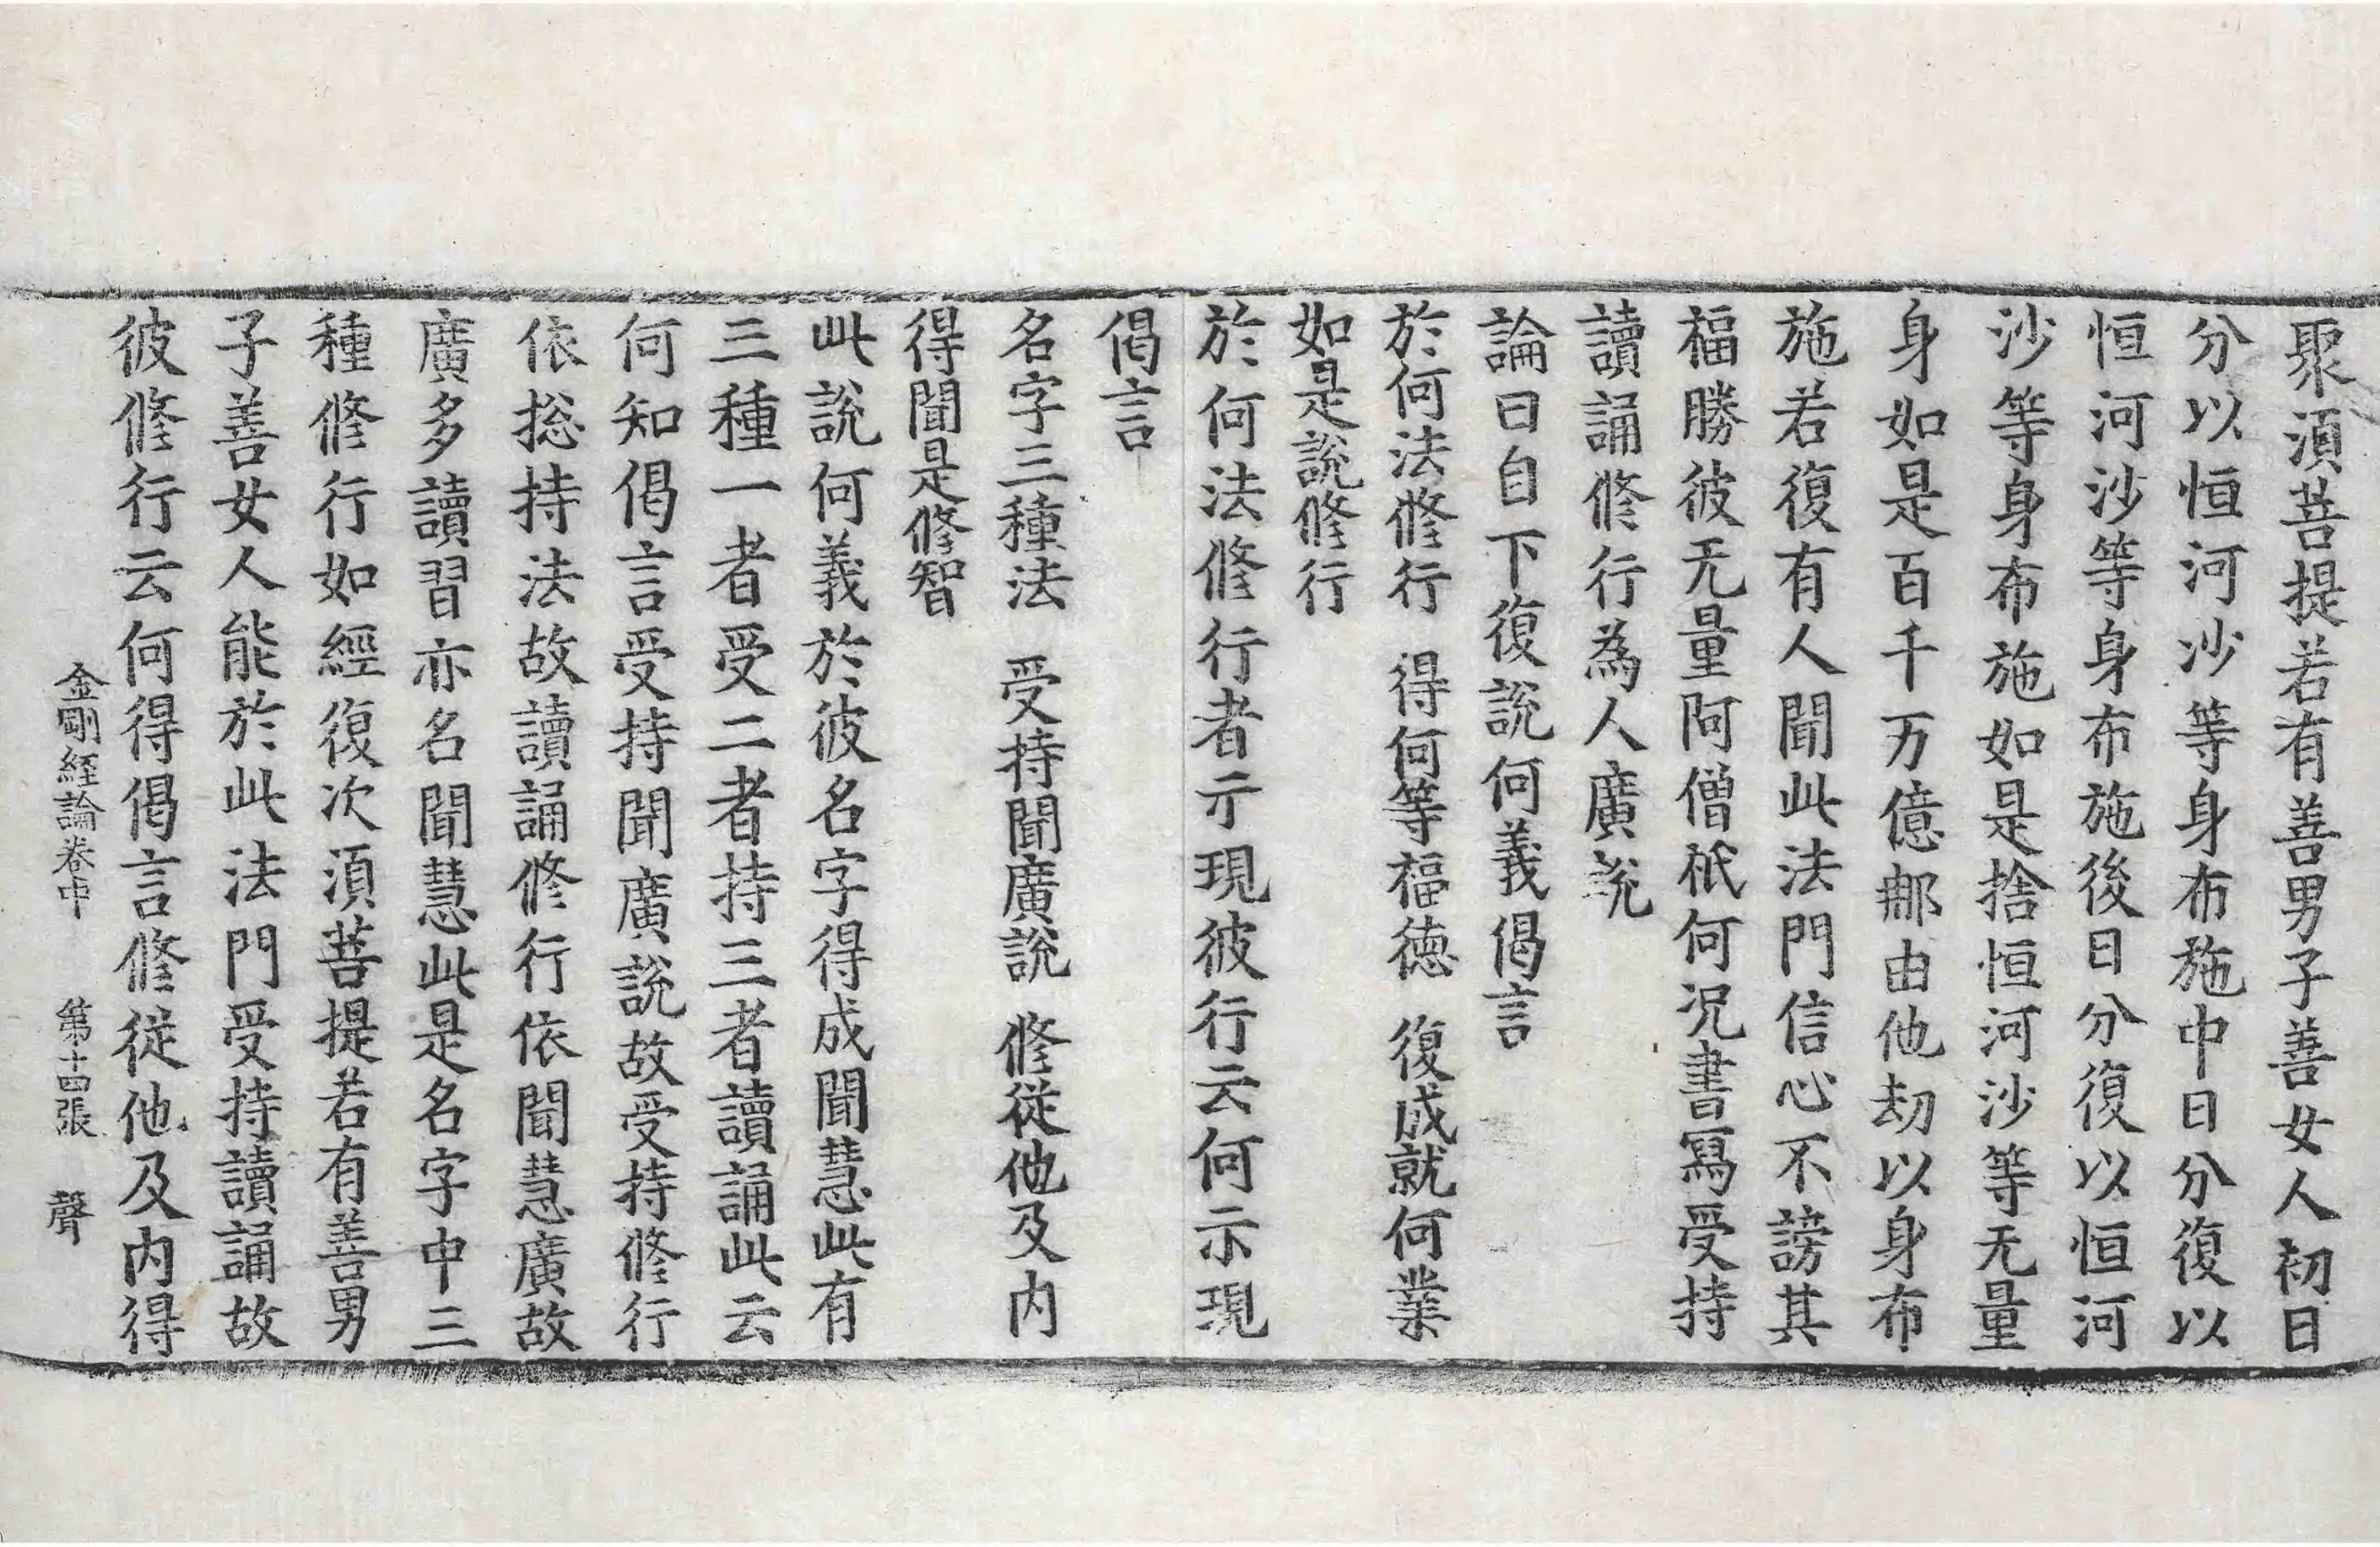 聚須菩提若有善男子善女人初日
分以恒河沙等身布施中日分復以
恒河沙等身布施後日分復以恒河
沙等身布施如是捨恒河沙等无量
身如是百千万億那由他劫以身布
施若復有人聞此法門信心不謗其
福勝彼无量阿僧祇何況書寫受持
讀誦修行為人廣說
論曰自下復說何義偈言
於何法修行　得何等福德　復成就何業
如是說修行
於何法修行者示現彼行云何示現
偈言
名字三種法　受持聞廣說　修從他及內
得聞是修智
此說何義於彼名字得成聞慧此有
三種一者受二者持三者讀誦此云
何知偈言受持聞廣說故受持修行
依捴持法故讀誦修行依聞慧廣故
廣多讀習亦名聞慧此是名字中三
種修行如經復次須菩提若有善男
子善女人能於此法門受持讀誦故
彼修行云何得偈言修從他及內得
金剛經論卷中　第十四張　聲